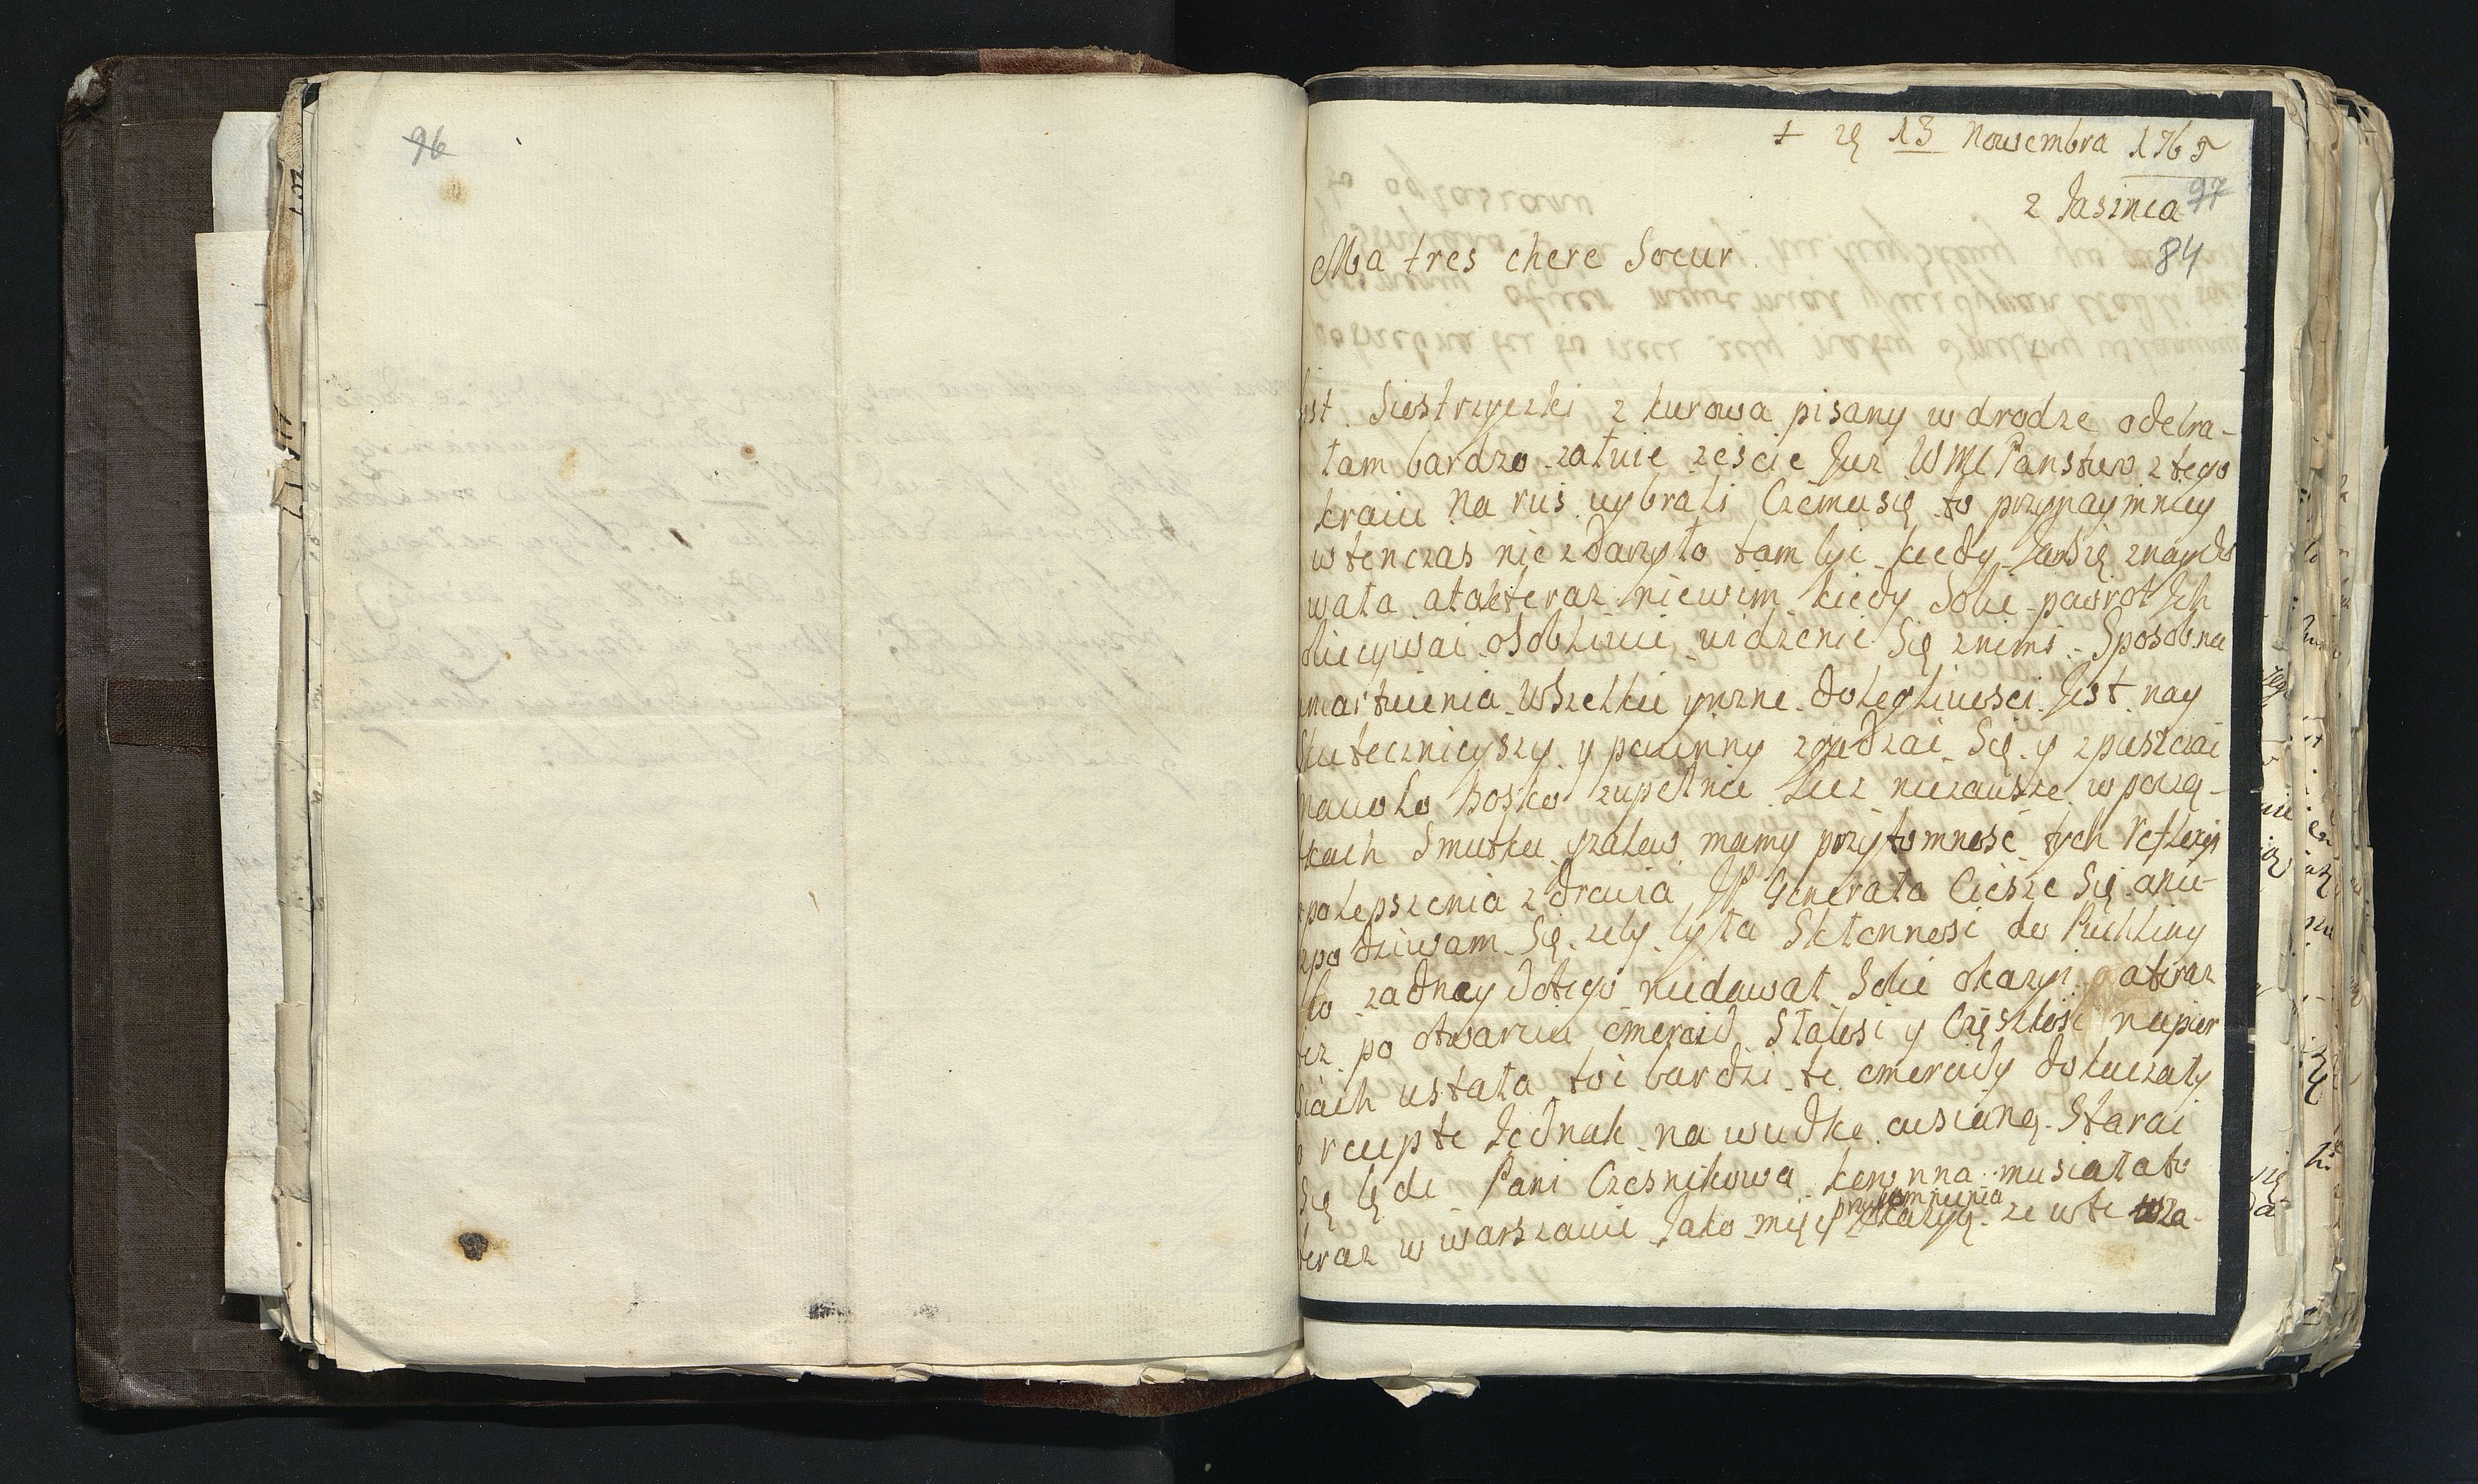 96
+ 2ę 13 Nowembra 1765
97
z Jasinca
84
Ma tres chere Soeur
Siostrzyczki z kurowa pisany w drodze odebra-
łam bardzo załuie zescie Juz WMC Panstwo z tego
kraiu na rus wybrali Czemu się to przynaymniey
w tenczas nie zdarzyło tam byc kiedy Jam Się znaydo
wała a tak teraz niewim kiedy Sobie powrot Ich
obiecywac osobliwie widzenie Się z nimi Sposobna
umartwienia wszelkie y rozne dolegliwosci Jest nay
Skutecznieyszy y pewnny zgadzac Się y zpuszczac
na wolo Bosko zupełnie lecz niezawsze w począ-
tkach Smutku y zalow mamy przytomnosc tych reflexyi
polepszenia zdrowia JP Generała Ciesze Się a nie
spodziwam Się zeby była Skłonnosc do Puchliny
bo zadney do tego niedawał Sobie okazyi a teraz
tez po otwarciu emeroid Słabosc y Cięszkosc na pier
siach ustała toc bardzi te emeroidy dokuczały
recepte Jednak na wudke Starac
Się będe Pani Czesnikowa musiała to
przypomnienia
teraz w warszawie Jako mię ze w te